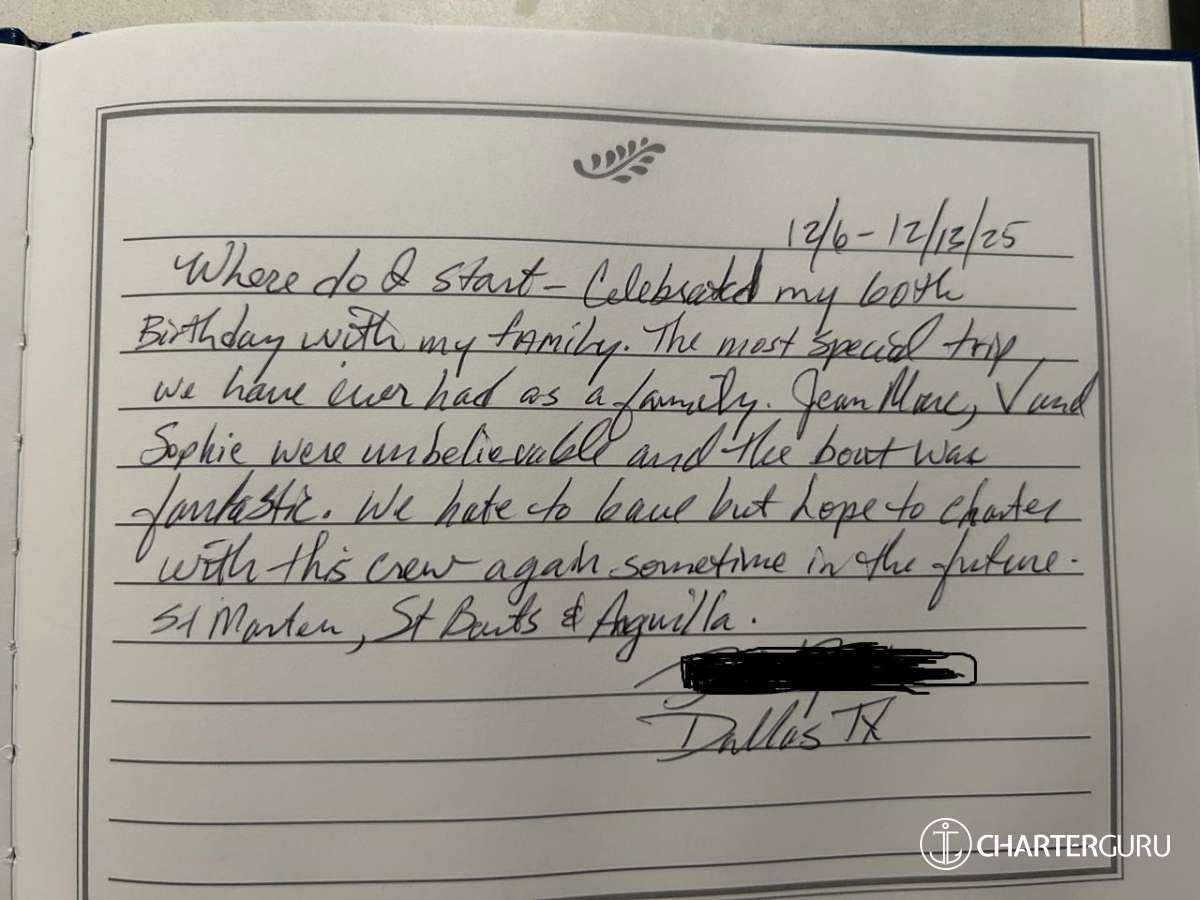 12/6 - 12/13/25
Where do I start - Celebrated my 60th
Birthday with my family. The most special trip
we have ever had as a family. Jean Marc, V and
Sophie were unbelievable and the boat was
fantastic. We hate to leave but hope to charter
with this crew again sometime in the future.
St Marten, St Barts & Anguilla.
Dallas TX
CHARTERGURU